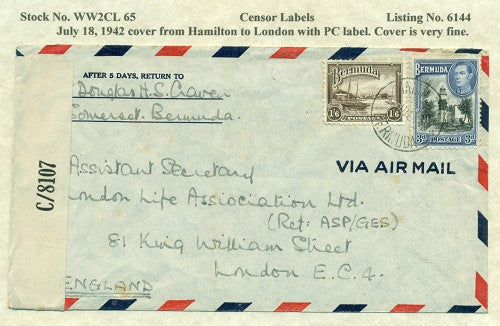 Stock No. WW2CL 65 Censor Labels Listing No. 6144
July 18, 1942 cover from Hamilton to London with PC label. Cover is very fine.
AFTER 5 DAYS, RETURN TO
Douglas H.S. Craven
Somerset. Bermuda.
Bermuda
1/6 POSTAGE 1/6
BERMUDA
3d POSTAGE 3d
VIA AIR MAIL
C/8107
Assistant Secretary
London Life Association Ltd.
(Ref: ASP/GES)
81 King William Street
London E.C.4.
ENGLAND